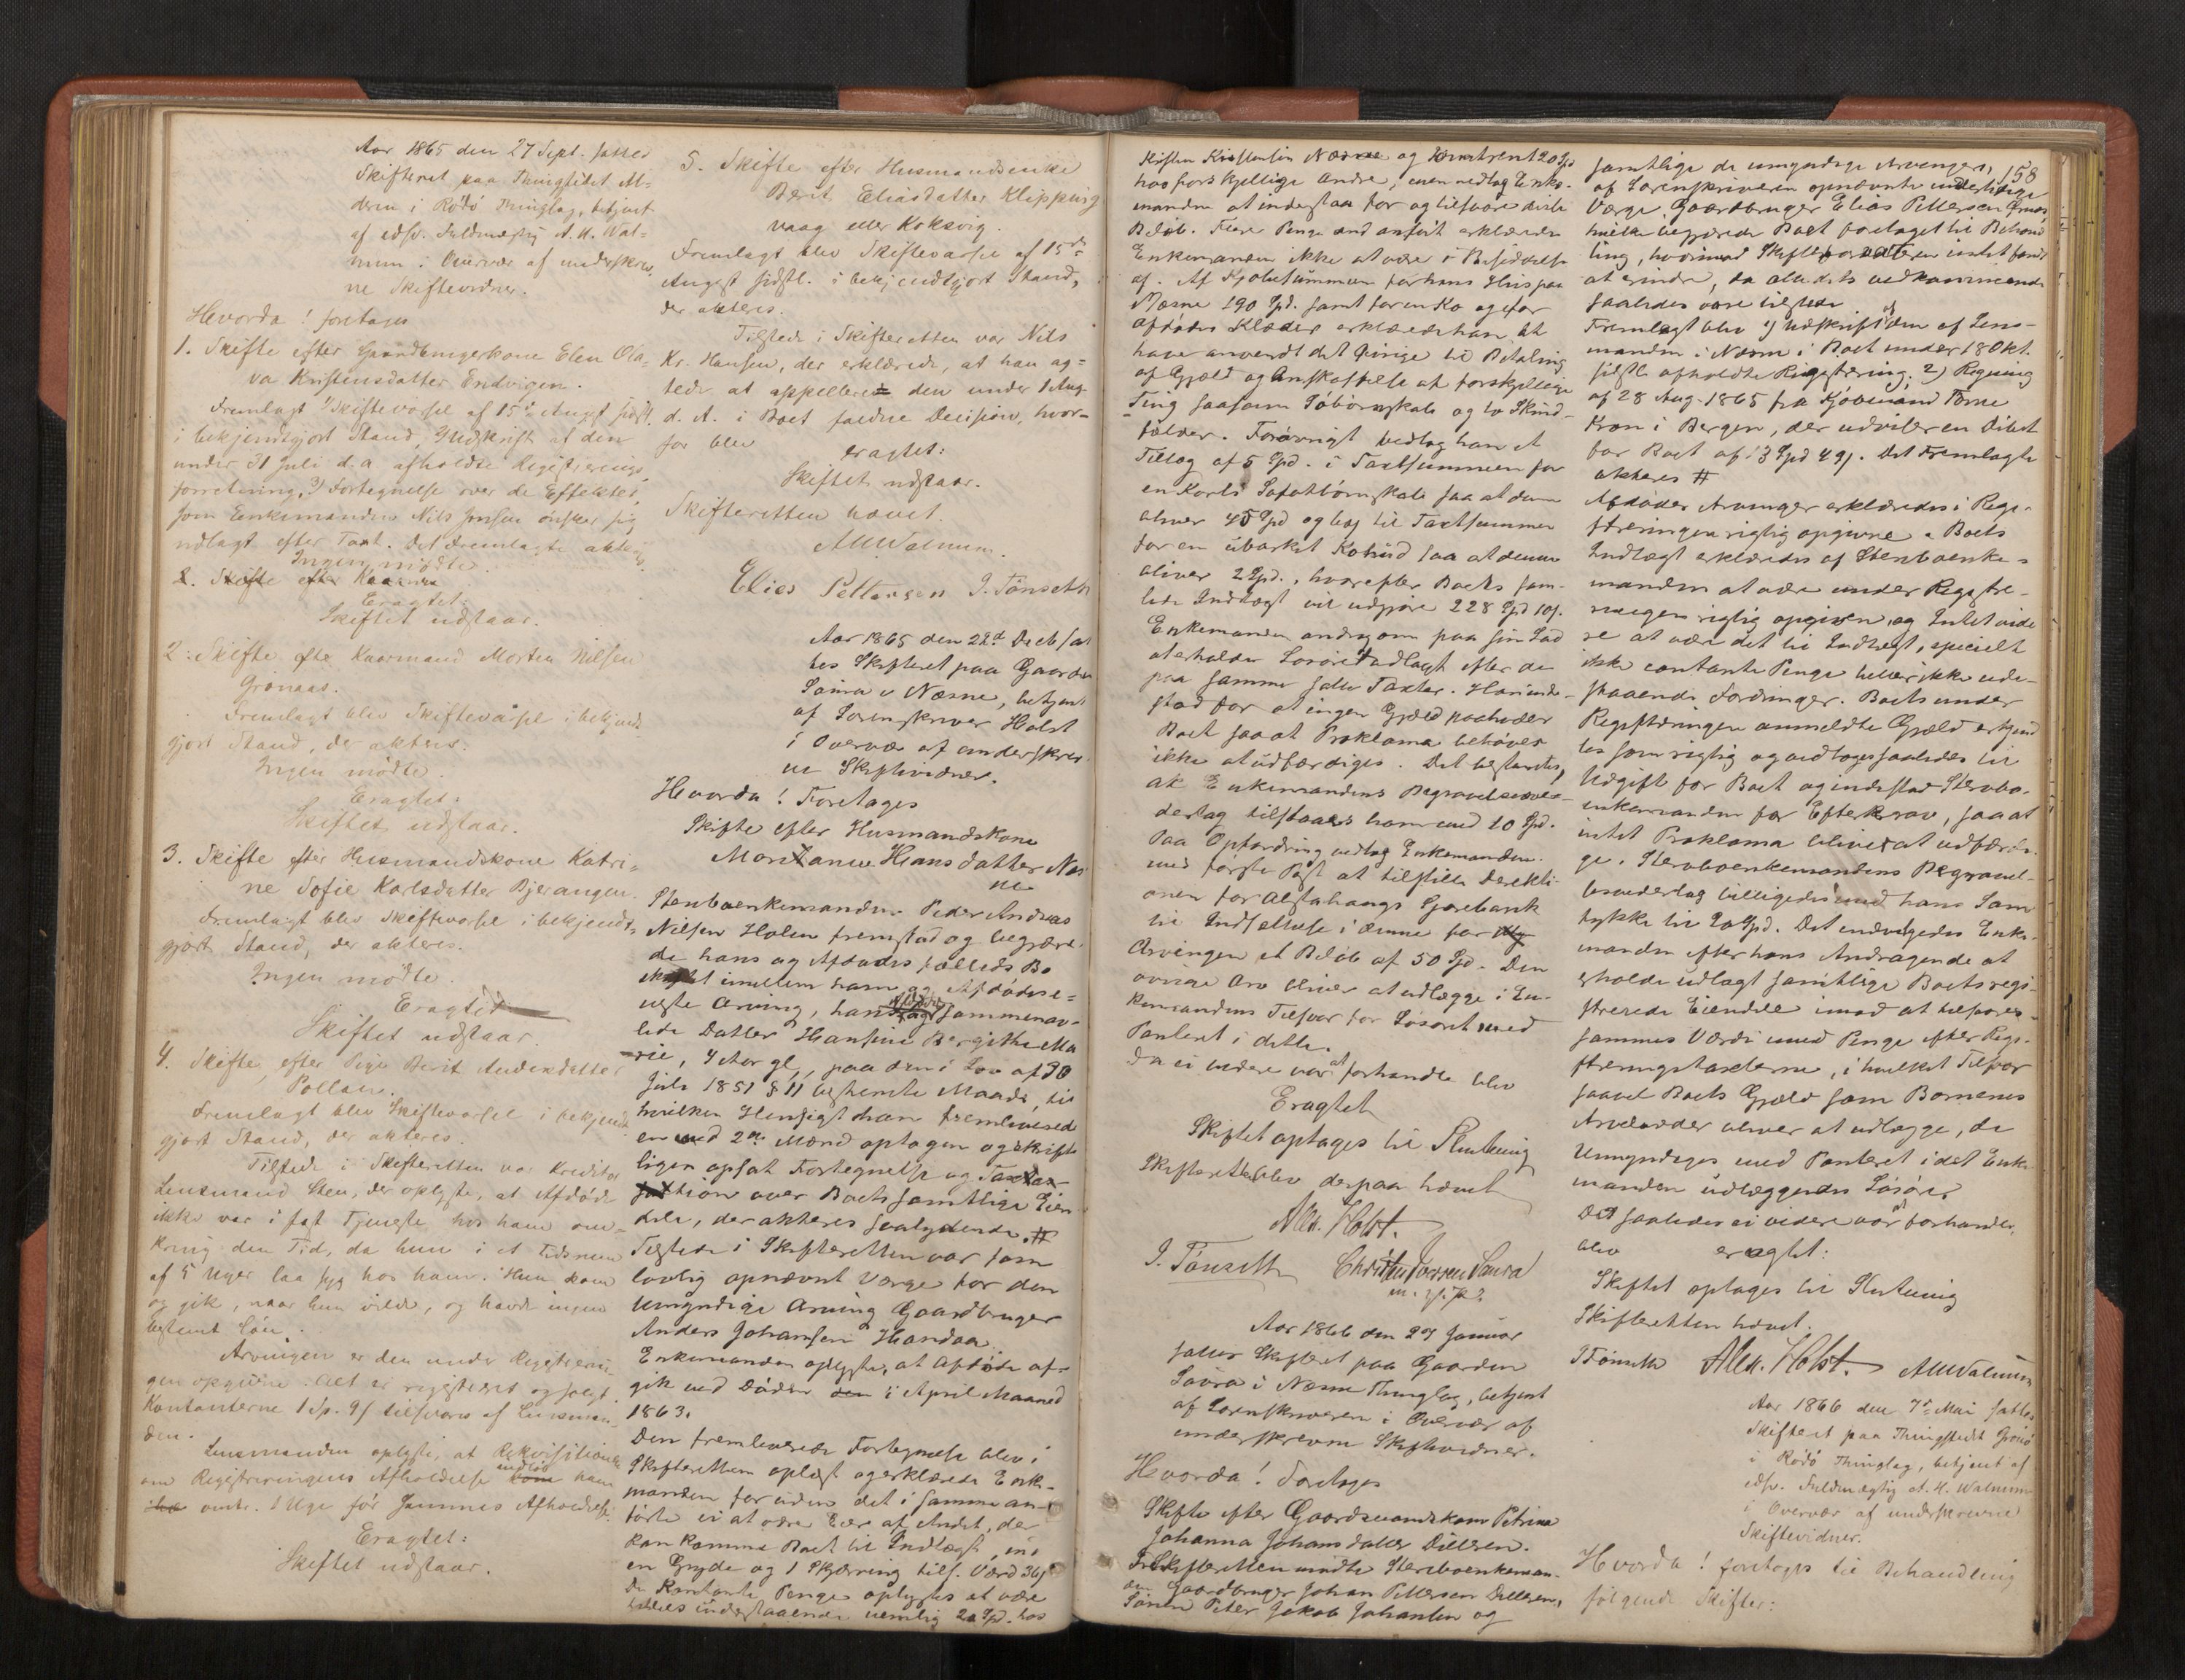 Aar 1865 den 27 Sept. sattes
Skifteret paa Thingstedet
i Rödö Thinglag, betjent
af edsv. Fuldmægtig A. M. Wal-
num i Overvær af underskrev-
ne Skiftevidner.
Hvorda! foretages
1. Skifte efter Gaardbrugerkone Elen Ola-
va Kristensdatter Endvigen.
Fremlagt 1) Skiftevarsel af 15de Augst sidstl.
i bekjendtgjort Stand, 2) Udskrift af den
under 31 Juli d. A. afholdte Registrerings-
forretning, 3) Fortegnelse over de Effekter,
som Enkemanden Nils Jensen ønsker sig
udlagt efter Taxt. Det Fremlagte akteres.
Ingen mødte.
2. Skifte efter Kaarma
Eragtet:
Skiftet udstaar.
2. Skifte efter Kaarmand Morten Nilsen
Grönaas.
Fremlagt blev Skiftevarsel i bekjendt-
gjort Stand, der akteres.
Ingen mödte.
Eragtet:
Skiftet udstaar.
3. Skifte efter Husmandskone Katri-
ne Sofie Karlsdatter Bjerangen.
Fremlagt blev Skiftevarsel i bekjendt-
gjort Stand, der akteres.
Ingen mödte.
Eragtet
Skiftet udstaar.
4. Skifte efter Pige Berit Andersdatter
Pollan.
Fremlagt blev Skiftevarsel i bekjendt-
gjort Stand, der akteres.
Tilstede i Skifteretten var Kreditor
Lensmand Steen, der oplyste, at Afdöde
ikke var i fast Tjeneste hos ham om-
kring den Tid, da hun i et Tidsrum
af 5 Uger laa syg hos ham. Hun kom
og gik, naar hun vilde, og havde ingen
bestemt Lön.
Arvingen er den under Registrerin-
gen opgivne. Alt er registreret og solgt.
Kontanterne 1 Sp. 9 s tilsvares af Lensman-
den.
Lensmanden oplyste, at Rekvisitionen
om Registreringens Afholdelse indlöb kom ham
omtr. 1 Uge för Sammes Afholdelse.
Eragtet:
Skiftet udstaar.
5. Skifte efter Husmandsenke
Berit Eliasdatter Klipping
vaag eller Koksvig.
Fremlagt blev Skiftevarsel af 15de
August sidstl. i bekjendtgjort Stand,
der akteres.
Tilstede i Skifteretten var Nils
Kr. Hansen, der erklærede, at han ag-
tede at appellere den under 1 Aug.
d. A. i Boet faldne Decision, hvor-
for blev
eragtet:
Skiftet udstaar.
Skifteretten hævet.
AMWalnum.
Elias Pettersen J. Tönseth
Aar 1865 den 22de Decb. sat
tes Skifteret paa Gaarden
Saura i Næsne, betjent
af Sorenskriver Holst
i Overvær af underskrev
ne Skiftevidner.
Hvorda! Foretages
Skifte efter Husmandskone
Montanne Hansdatter Næs
ne
Stervboenkemanden Peder Andreas
Nilsen Holen fremstod og begjære-
de hans og Afdödes fælleds Bo
skiftet imellem ham og Afdødes e-
neste Arving, hans og Afdödes sammenav-
lede Datter Hansine Bergithe Ma
rie, 4 Aar gl., paa den i Lov af 30
Juli 1851 § 11 bestemte Maade, til
hvilken Hensigt han fremleverede
en med 2de Mænd optagen og skrift-
ligen opsat Fortegnelse og Taxta-
tion over Boets samtlige Eien
dele, der akteres saalydende. #
Tilstede i Skifteretten var som
lovlig opnævnt Værge for den
umyndige Arving Gaardbruger
Anders Johansen Handaa.
Enkemanden oplyste, at Afdöde af-
gik ved Döden den i April Maaned
1863.
Den fremleverede Fortegnelse blev i
Skifteretten oplæst og erklærede Enke-
manden foruden det i samme an-
førte ei at være Eier af Andet, der
kan komme Boet til Indtægt, end
en Gryde og 1 Skjærring tils. Værd 36 s.
De kontante Penge oplystes at være
udestaaende nemlig 20 Spd. hos
Kristen Kristensen Næsne og omtrent 20 Spd
hos forskjellige Andre, men vedtog Enke-
manden at indestaa for og tilsvare disse
Beløb. Flere Penge end anført erklærede
Enkemanden ikke at være i Besiddelse
af. Af Kjøbesummen for hans Huus paa
Næsne 190 Spd. samt for en Ko og for
Afdödes Klæder erklærede han at
have anvendt det Øvrige til Betaling
af Gjæld og Anskaffelse af forskjellige
Ting saasom Söbörnskab og to Skind-
fælder. Forøvrigt vedtog han et
Tillæg af 5 Spd. i Taxtsummen for
en Karls Sofatbörnskab saa at denne
bliver 45 Spd og til Taxtsummen
for en ubarket Kohud saa at denne
bliver 2 Spd., hvorefter Boets sam-
lede Indtægt vil udgjøre 228 Spd 10 s.
Enkemanden androg om paa sin Lod
at erholde Løsøret udlagt efter de
paa samme satte Taxter. Han inde-
stod for at ingen Gjæld paahviler
Boet saa at Proklama behöves
ikke at udfærdiges. Det bestemtes,
at Enkemandens Begravelsesve-
derlag tilstaaes ham med 10 Spd.
Paa Opfordring vedtog Enkemanden
med förste Post at tilstille Direkti-
onen for Alstahaugs Sparebank
til Indsættelse i denne for
Arvingen et Belöb af 50 Spd. Den
øvrige Arv bliver at udlægge i En-
kemandens Tilsvar for Løsøret med
Panteret i dette.
Da ei videre var at forhandle blev
Eragtet
Skiftet optages til Slutning
Skifteretten blev derpaa hævet
Alex. Holst.
J. Tönseth Christen Saura
m. p. P.
Aar 1866 den 29 Januar
sattes Skifteret paa Gaarden
Saura i Næsne Thinglag, betjent
af Sorenskriveren i Overvær af
underskrevne Skiftevidner.
Hvorda! Foretages
Skifte efter Gaardmandskone Petrine
Johanna Johansdatter Dillesen.
I Skifteretten mødte Stervboenkeman-
den Gaardbruger Johan Pettersen Dillesen,
Sönnen Peter Jakob Johansen og
158
samtlige de umyndige Arvingers,
af Sorenskriveren opnævnte midlertidige
Værge, Gaardbruger Elias Pettersen
hvilke begjærede Boet foretaget til Behand
ling, hvorimod Skifteforvalteren intet fandt
at erindre, da alle dets Vedkommende
saaledes vare tilstede
Fremlagt blev 1) Udskrift af den af Lens-
manden i Næsne i Boet under 18 Okt.
sidstl. afholdte Registrering; 2) Regning
af 28 Aug. 1865 fra Kjöbmand Tönne
Kron i Bergen, der udviser en Debet
for Boet af 3 Spd 49 s. Det Fremlagte
akteres #
Afdödes Arvinger erklæredes i Regi-
streringen rigtig opgivne. Boets
Indtægt erklæredes af Stervboenke-
manden at være under Registre-
ringen rigtig opgiven, og Intet vide
re at være det til Indtægt, specielt
ikke contante Penge heller ikke ude-
staaende Fordringer. Boets under
Registreringen anmeldte Gjæld erkjend
tes som rigtig og vedtoges saaledes til
Udgift for Boet og indestod Stervbo-
enkemanden for Efterkrav, saa at
intet Proklama bliver at udfærdi-
ge. Stervboenkemandens Begravel-
sesvederlag billigedes med hans Sam
tykke til 20 Spd. Det indvilgedes Enke-
manden efter hans Andragende at
erholde udlagt samtlige Boets regi-
strerede Eiendele imod at tilsvare
sammes Værdi med Penge efter Regi-
streringstaxterne, i hvilket Tilsvar
saavel Boets Gjæld som Børnenes
Arvelodder bliver at udlægge, de
Umyndiges med Panteret i det Enke-
manden udlæggendes Løsøre.
Det saaledes ei videre var at forhandle,
blev eragtet:
Skiftet optages til Slutning
Skifteretten hævet.
J Tönseth Alex. Holst. AMWalnum
Aar 1866 den 7de Mai sattes
Skifteret paa Thingstedet Grönö
i Rödö Thinglag, betjent af
edsv. Fuldmægtig A. M. Walnum
i Overvær af underskrevne
Skiftevidner.
Hvorda! foretages til Behandling
følgende Skifter: